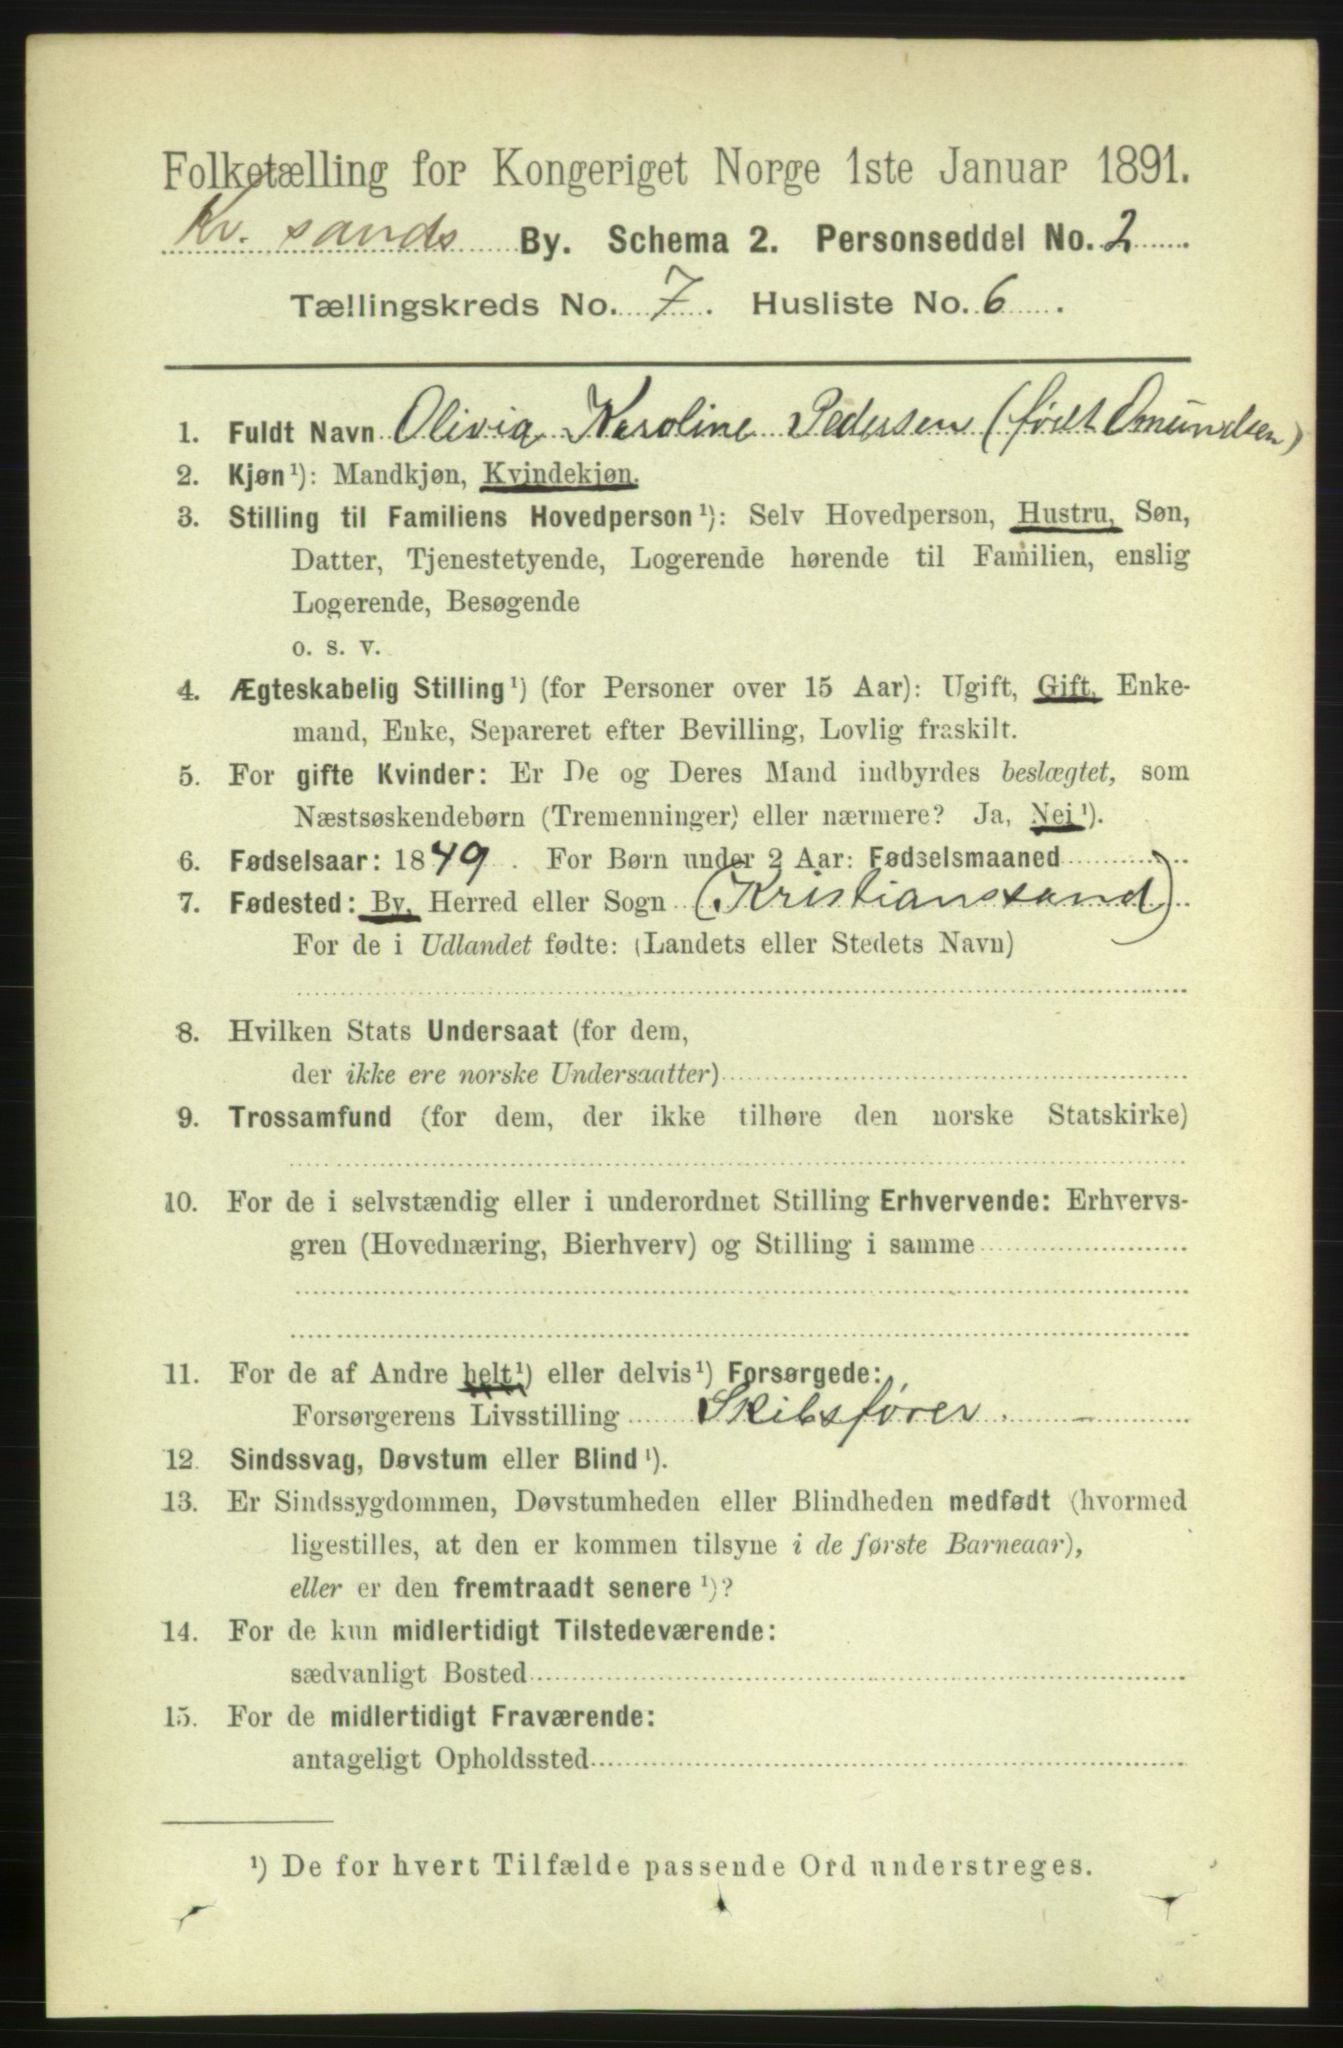 Folketælling for Kongeriget Norge 1ste Januar 1891.
Kr. sands By. Schema 2. Personseddel No. 2
Tællingskreds No. 7. Husliste No. 6.
1. Fuldt Navn Olivia Karoline Pedersen (født Omundsen)
2. Kjøn ¹): Mandkjøn, Kvindekjøn.
3. Stilling til Familiens Hovedperson ¹): Selv Hovedperson, Hustru, Søn,
Datter, Tjenestetyende, Logerende hørende til Familien, enslig
Logerende, Besøgende
o. s. v.
4. Ægteskabelig Stilling ¹) (for Personer over 15 Aar): Ugift, Gift, Enke-
mand, Enke, Separeret efter Bevilling, Lovlig fraskilt.
5. For gifte Kvinder: Er De og Deres Mand indbyrdes beslægtet, som
Næstsøskendebørn (Tremenninger) eller nærmere? Ja, Nei ¹).
6. Fødselsaar: 1849. For Børn under 2 Aar: Fødselsmaaned
7. Fødested: By, Herred eller Sogn (Kristianssand)
For de i Udlandet fødte: (Landets eller Stedets Navn)
8. Hvilken Stats Undersaat (for dem,
der ikke ere norske Undersaatter)
9. Trossamfund (for dem, der ikke tilhøre den norske Statskirke)
10. For de i selvstændig eller i underordnet Stilling Erhvervende: Erhvervs-
gren (Hovednæring, Bierhverv) og Stilling i samme
11. For de af Andre helt ¹) eller delvis ¹) Forsørgede:
Forsørgerens Livsstilling Skibsfører.
12. Sindssvag, Døvstum eller Blind ¹).
13. Er Sindssygdommen, Døvstumheden eller Blindheden medfødt (hvormed
ligestilles, at den er kommen tilsyne i de første Barneaar),
eller er den fremtraadt senere ¹)?
14. For de kun midlertidigt Tilstedeværende:
sædvanligt Bosted
15. For de midlertidigt Fraværende:
antageligt Opholdssted
¹) De for hvert Tilfælde passende Ord understreges.